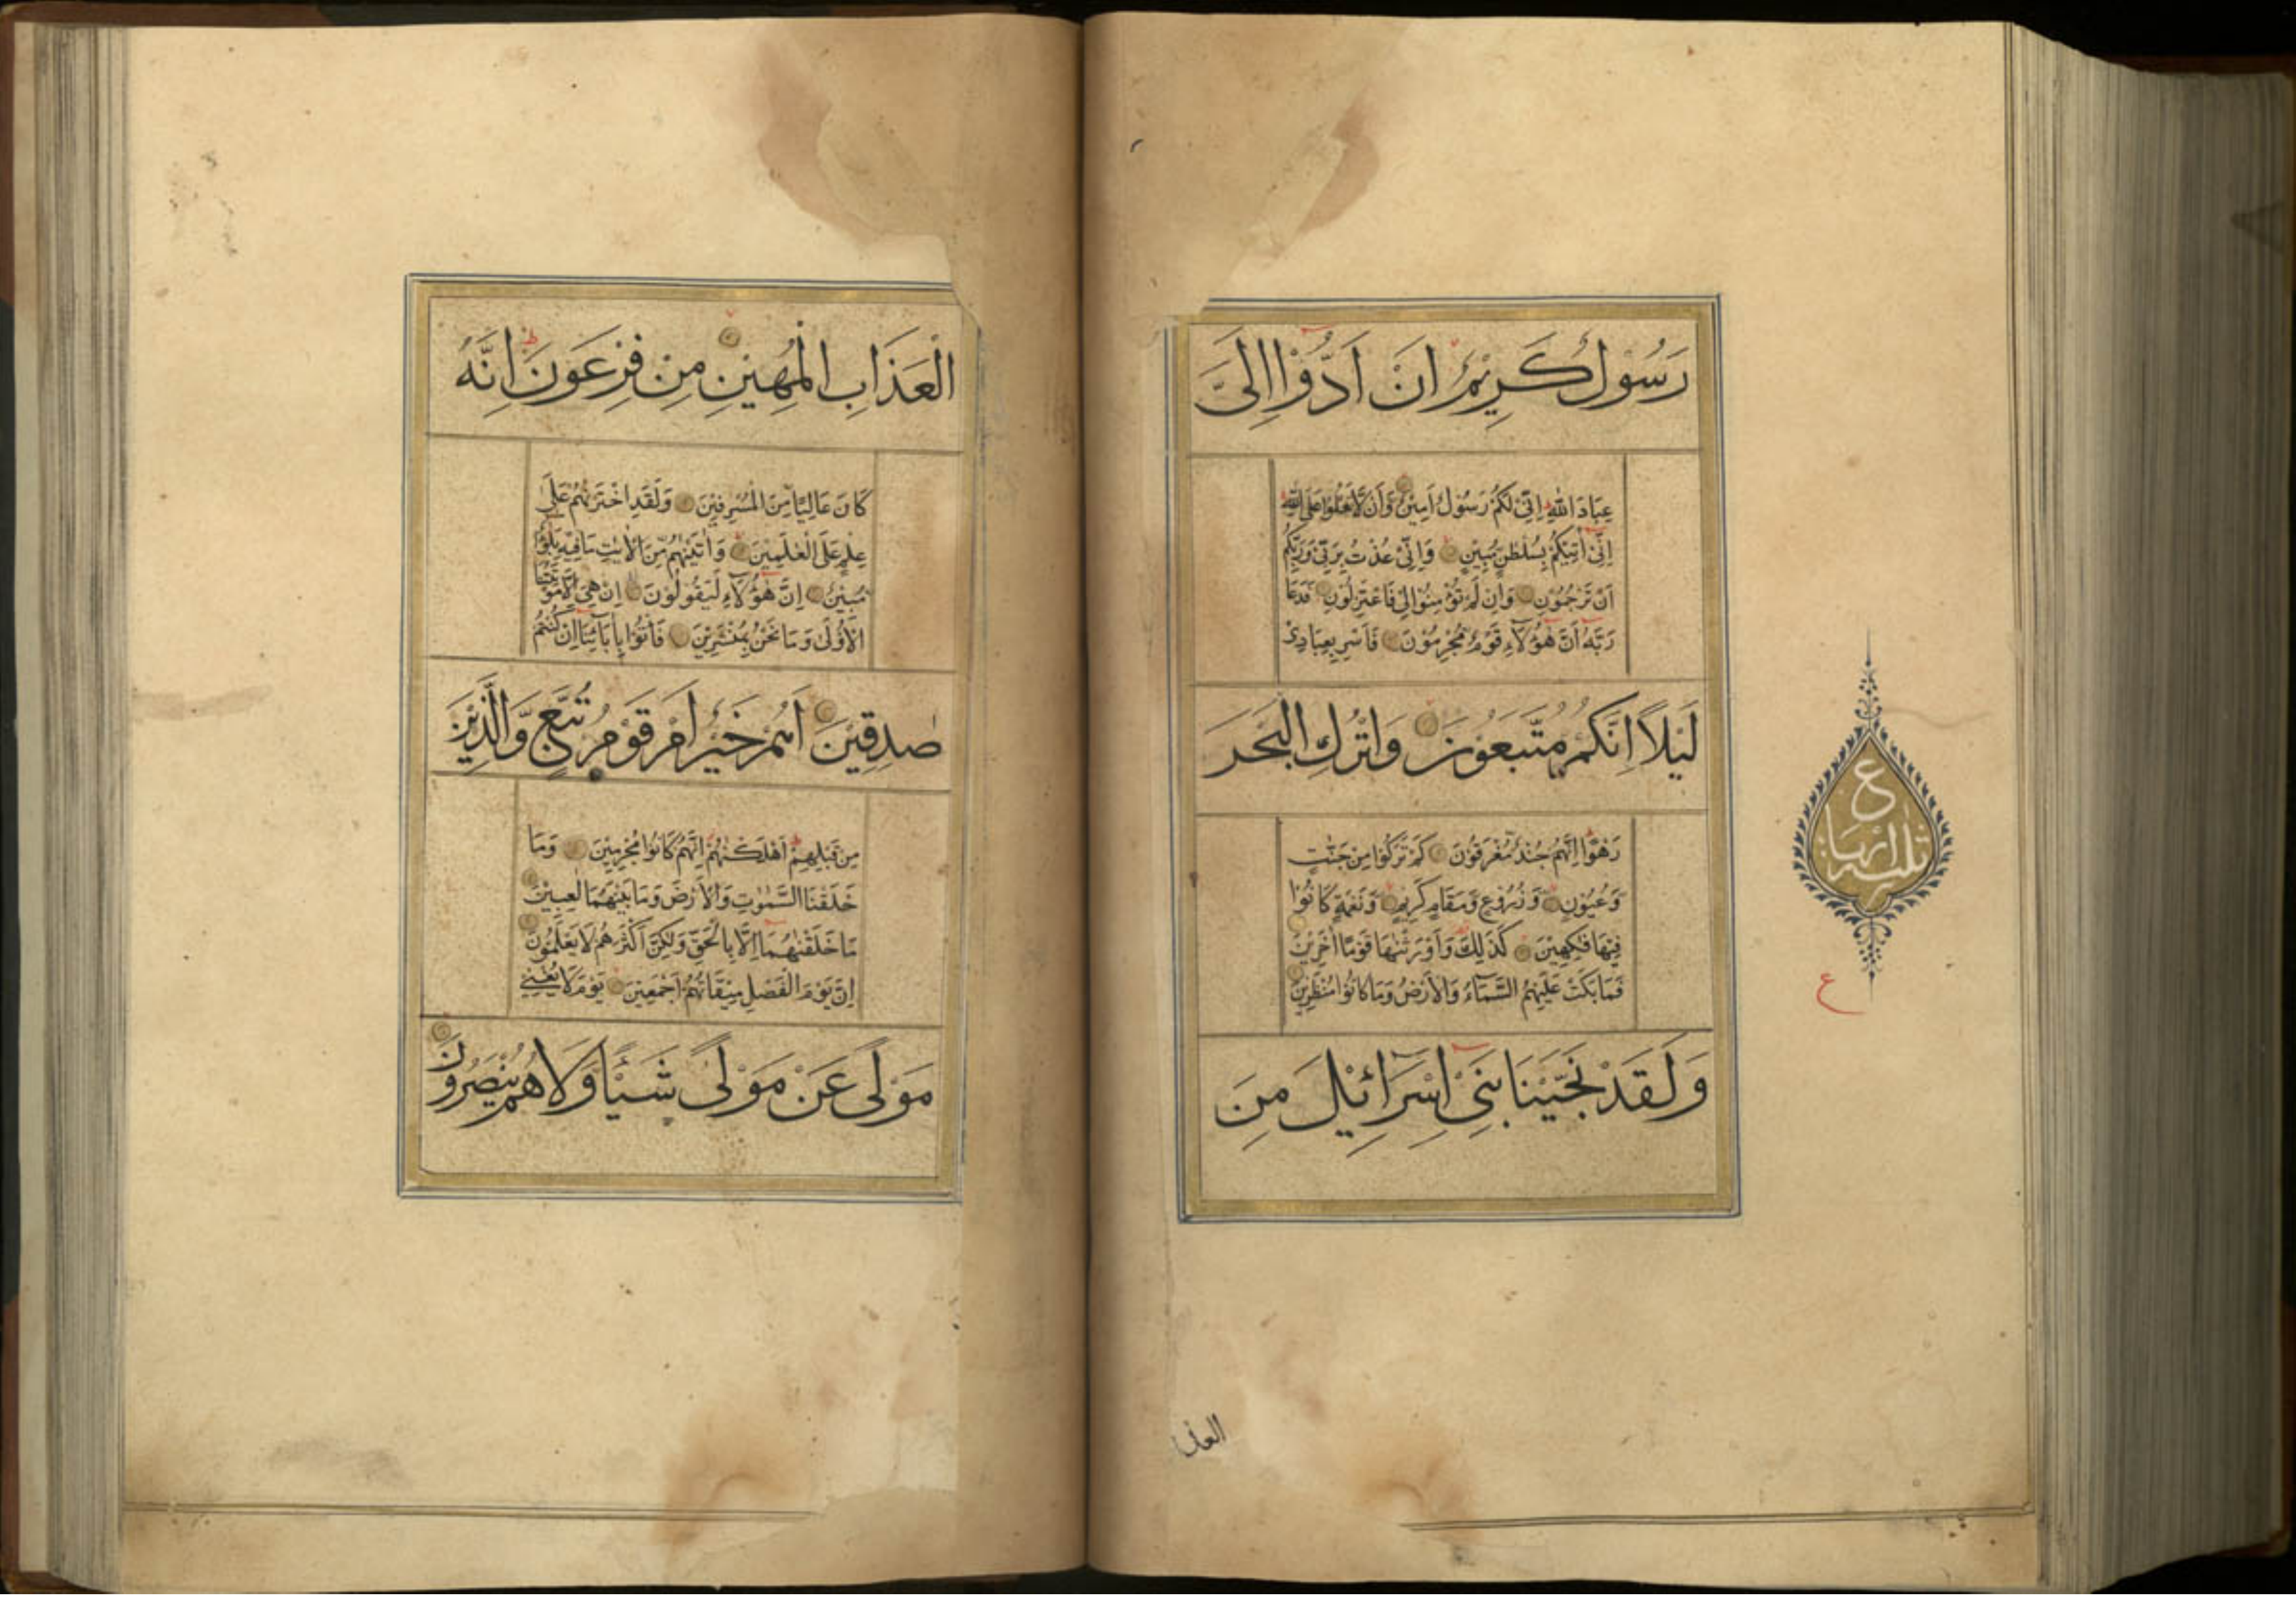 رَسُوْلٌ كَرِيْمٌ اَنْ اَدُّوْا اِلَيَّ
عِبَادَ اللّٰهِ اِنِّيْ لَكُمْ رَسُوْلٌ اَمِيْنٌ وَاَنْ لَا تَعْلُوْا عَلَى اللّٰهِ
اِنِّيْ اٰتِيْكُمْ بِسُلْطٰنٍ مُبِيْنٍ وَاِنِّيْ عُذْتُ بِرَبِّيْ وَرَبِّكُمْ
اَنْ تَرْجُمُوْنِ وَاِنْ لَمْ تُؤْمِنُوْا لِيْ فَاعْتَزِلُوْنِ فَدَعَا
رَبَّهُ اَنَّ هٰؤُلَاءِ قَوْمٌ مُجْرِمُوْنَ فَاَسْرِ بِعِبَادِيْ
لَيْلًا اِنَّكُمْ مُتَّبَعُوْنَ وَاتْرُكِ الْبَحْرَ
رَهْوًا اِنَّهُمْ جُنْدٌ مُغْرَقُوْنَ كَمْ تَرَكُوْا مِنْ جَنّٰتٍ
وَعُيُوْنٍ وَزُرُوْعٍ وَمَقَامٍ كَرِيْمٍ وَنَعْمَةٍ كَانُوْا
فِيْهَا فٰكِهِيْنَ كَذٰلِكَ وَاَوْرَثْنٰهَا قَوْمًا اٰخَرِيْنَ
فَمَا بَكَتْ عَلَيْهِمُ السَّمَآءُ وَالْاَرْضُ وَمَا كَانُوْا مُنْظَرِيْنَ
وَلَقَدْ نَجَّيْنَا بَنِيْ اِسْرَآئِيْلَ مِنَ
ع
ثلثة ارباع
ع
العذا
الْعَذَابِ الْمُهِيْنِ مِنْ فِرْعَوْنَ اِنَّهُ
كَانَ عَالِيًا مِنَ الْمُسْرِفِيْنَ وَلَقَدِ اخْتَرْنٰهُمْ عَلٰى
عِلْمٍ عَلَى الْعٰلَمِيْنَ وَاٰتَيْنٰهُمْ مِنَ الْاٰيٰتِ مَا فِيْهِ بَلٰٓؤٌ
مُبِيْنٌ اِنَّ هٰؤُلَاءِ لَيَقُوْلُوْنَ اِنْ هِيَ اِلَّا مَوْتَتُنَا
الْاُوْلٰى وَمَا نَحْنُ بِمُنْشَرِيْنَ فَاْتُوْا بِاٰبَآئِنَا اِنْ كُنْتُمْ
صٰدِقِيْنَ اَهُمْ خَيْرٌ اَمْ قَوْمُ تُبَّعٍ وَّالَّذِيْنَ
مِنْ قَبْلِهِمْ اَهْلَكْنٰهُمْ اِنَّهُمْ كَانُوْا مُجْرِمِيْنَ وَمَا
خَلَقْنَا السَّمٰوٰتِ وَالْاَرْضَ وَمَا بَيْنَهُمَا لٰعِبِيْنَ
مَا خَلَقْنٰهُمَا اِلَّا بِالْحَقِّ وَلٰكِنَّ اَكْثَرَهُمْ لَا يَعْلَمُوْنَ
اِنَّ يَوْمَ الْفَصْلِ مِيْقَاتُهُمْ اَجْمَعِيْنَ يَوْمَ لَا يُغْنِيْ
مَوْلًى عَنْ مَوْلًى شَيْئًا وَّلَا هُمْ يُنْصَرُوْنَ